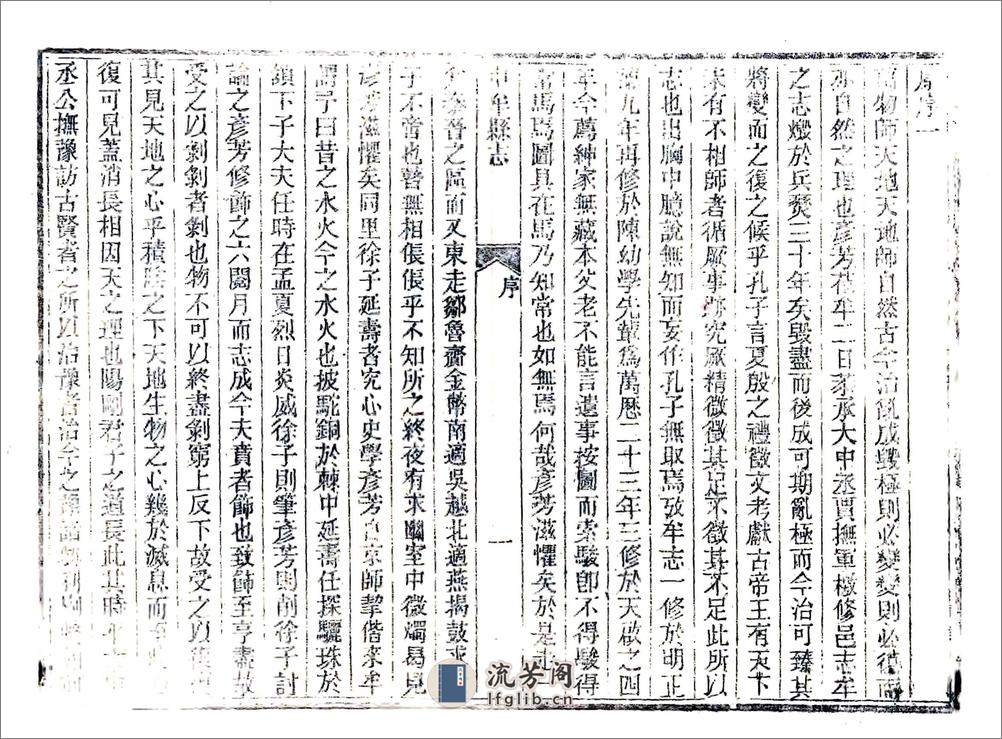 序一
萬物師天地天地師自然古今治亂成毀極則必變變則必復而
亦自然之理也彥芳在牟二日 承大中丞賈撫軍檄修邑志牟
之志燬於兵燹三十年矣毀盡而後成可期亂極而今治可臻其
將變而之復之候乎孔子言夏殷之禮徵文考獻古帝王有天下
未有不相師者循厥事跡究厥精微徵其足不徵其不足此所以
志也出胸中臆說無知而妄作孔子無取焉攷牟志一修於明正
九年再修於陳幼學先輩為萬曆二十三年三修於天啟之四
年今薦紳家無藏本父老不能言遺事按圖而索駿卽不得駿得
馬焉圖具在馬乃知常也如無焉何哉彥芳滋懼矣於是走
中牟縣志
序
一
之區而又東走鄒魯齎金幣南適吳越北適燕揭鼓求
子不啻也瞽無相倀倀乎不知所之終夜有求幽室中微燭曷見
滋懼矣同里徐子延壽者究心史學彥芳自京師挈偕來牟
謂予曰昔之水火今之水火也披駝銅於棘中延壽任探驪珠於
鎖下子大夫任時在孟夏烈日炎威徐子則筆彥芳則削徐子討
論之彥芳修飾之六閱月而志成今夫賁者飾也致飾至亨盡故
受之以剝剝者剝也物不可以終盡剝窮上反下故受之以復
其見天地之心乎積陰之下天地生物之心幾於滅息而至
復可見蓋消長相因天之理也陽剛君子之道長此其時乎
丞公撫豫訪古賢者之所以治豫者治今之豫